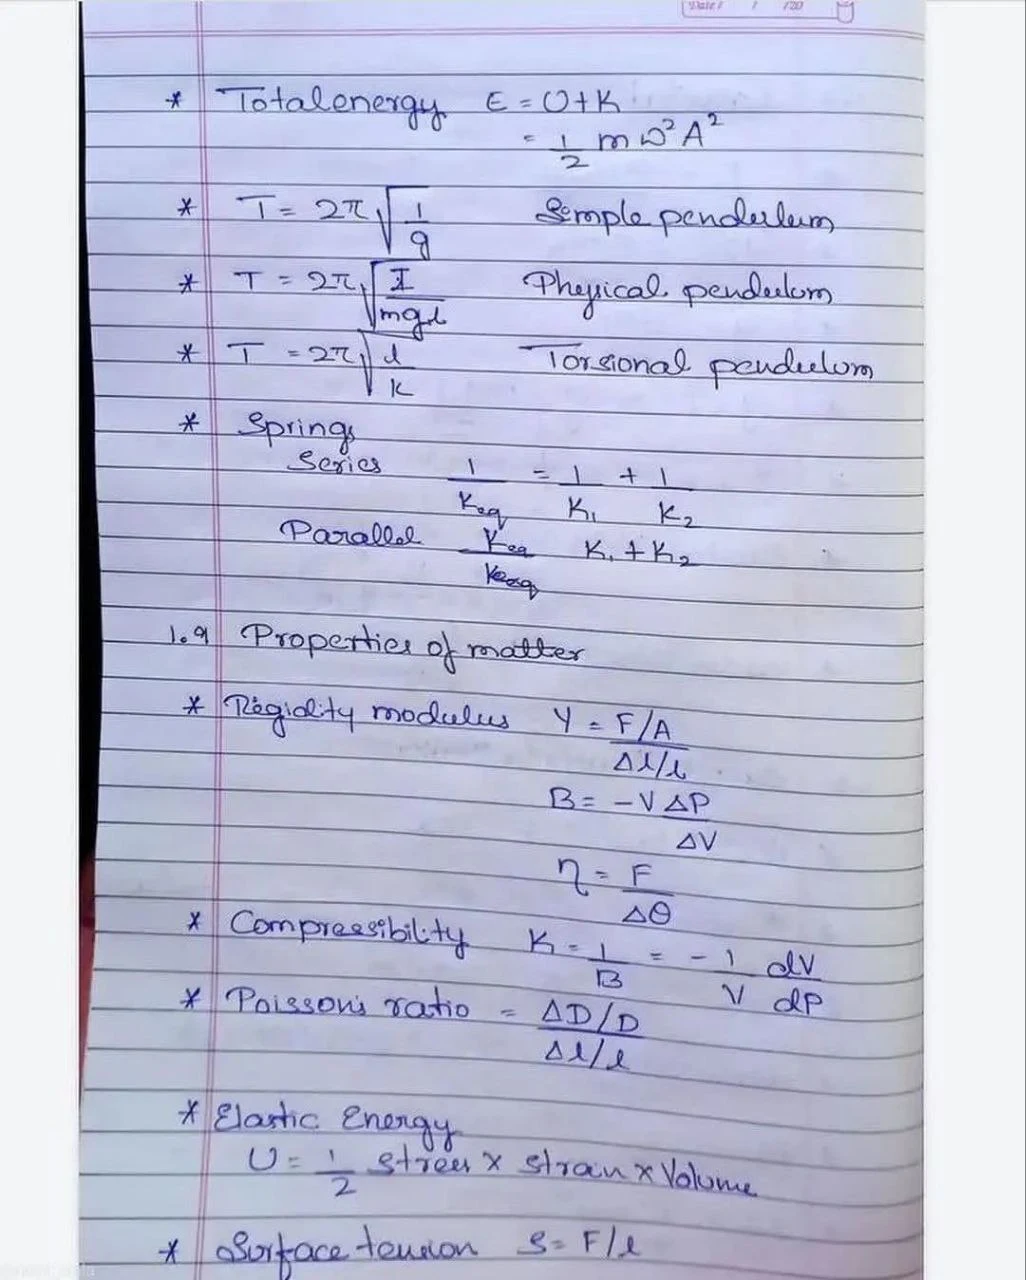 Date / / /20
* Total energy E = U+K
= 1/2 mω²A²
* T = 2π√(1/g) Simple pendulum
* T = 2π√(I/mgl) Physical pendulum
* T = 2π√(l/K) Torsional pendulum
* Springs
Series 1/Keq = 1/K₁ + 1/K₂
Parallel Keq K₁ + K₂
1.9 Properties of matter
* Rigidity modulus Y = F/A / Δl/l
B = -V ΔP/ΔV
η = F/Δθ
* Compressibility K = 1/B = -1/V dV/dP
* Poisson's ratio = ΔD/D / Δl/l
* Elastic Energy
U = 1/2 stress × stran × Volume
* Surface tension S = F/l